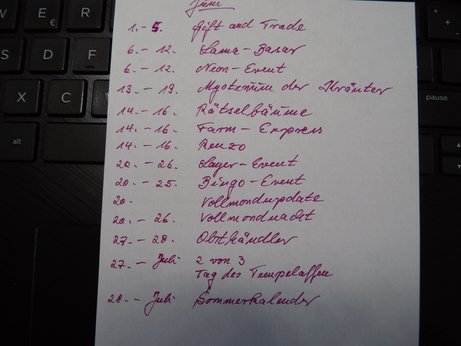 Juni
1. - 5. Gift and Trade
6 - 12. Lama-Basar
6 - 12. Neon-Event
13 - 19. Mysterium der Kräuter
14 - 16. Rätselbäume
14 - 16. Farm-Express
14 - 16. Renzo
20. - 26. Lager-Event
20. - 25. Bingo-Event
20. Vollmondupdate
20. - 26. Vollmondnacht
27 - 28. Obsthändler
27. - Juli 2 von 3
Tag des Tempelaffen
28. - Juli Sommerkalender
alt
ctrl
pause